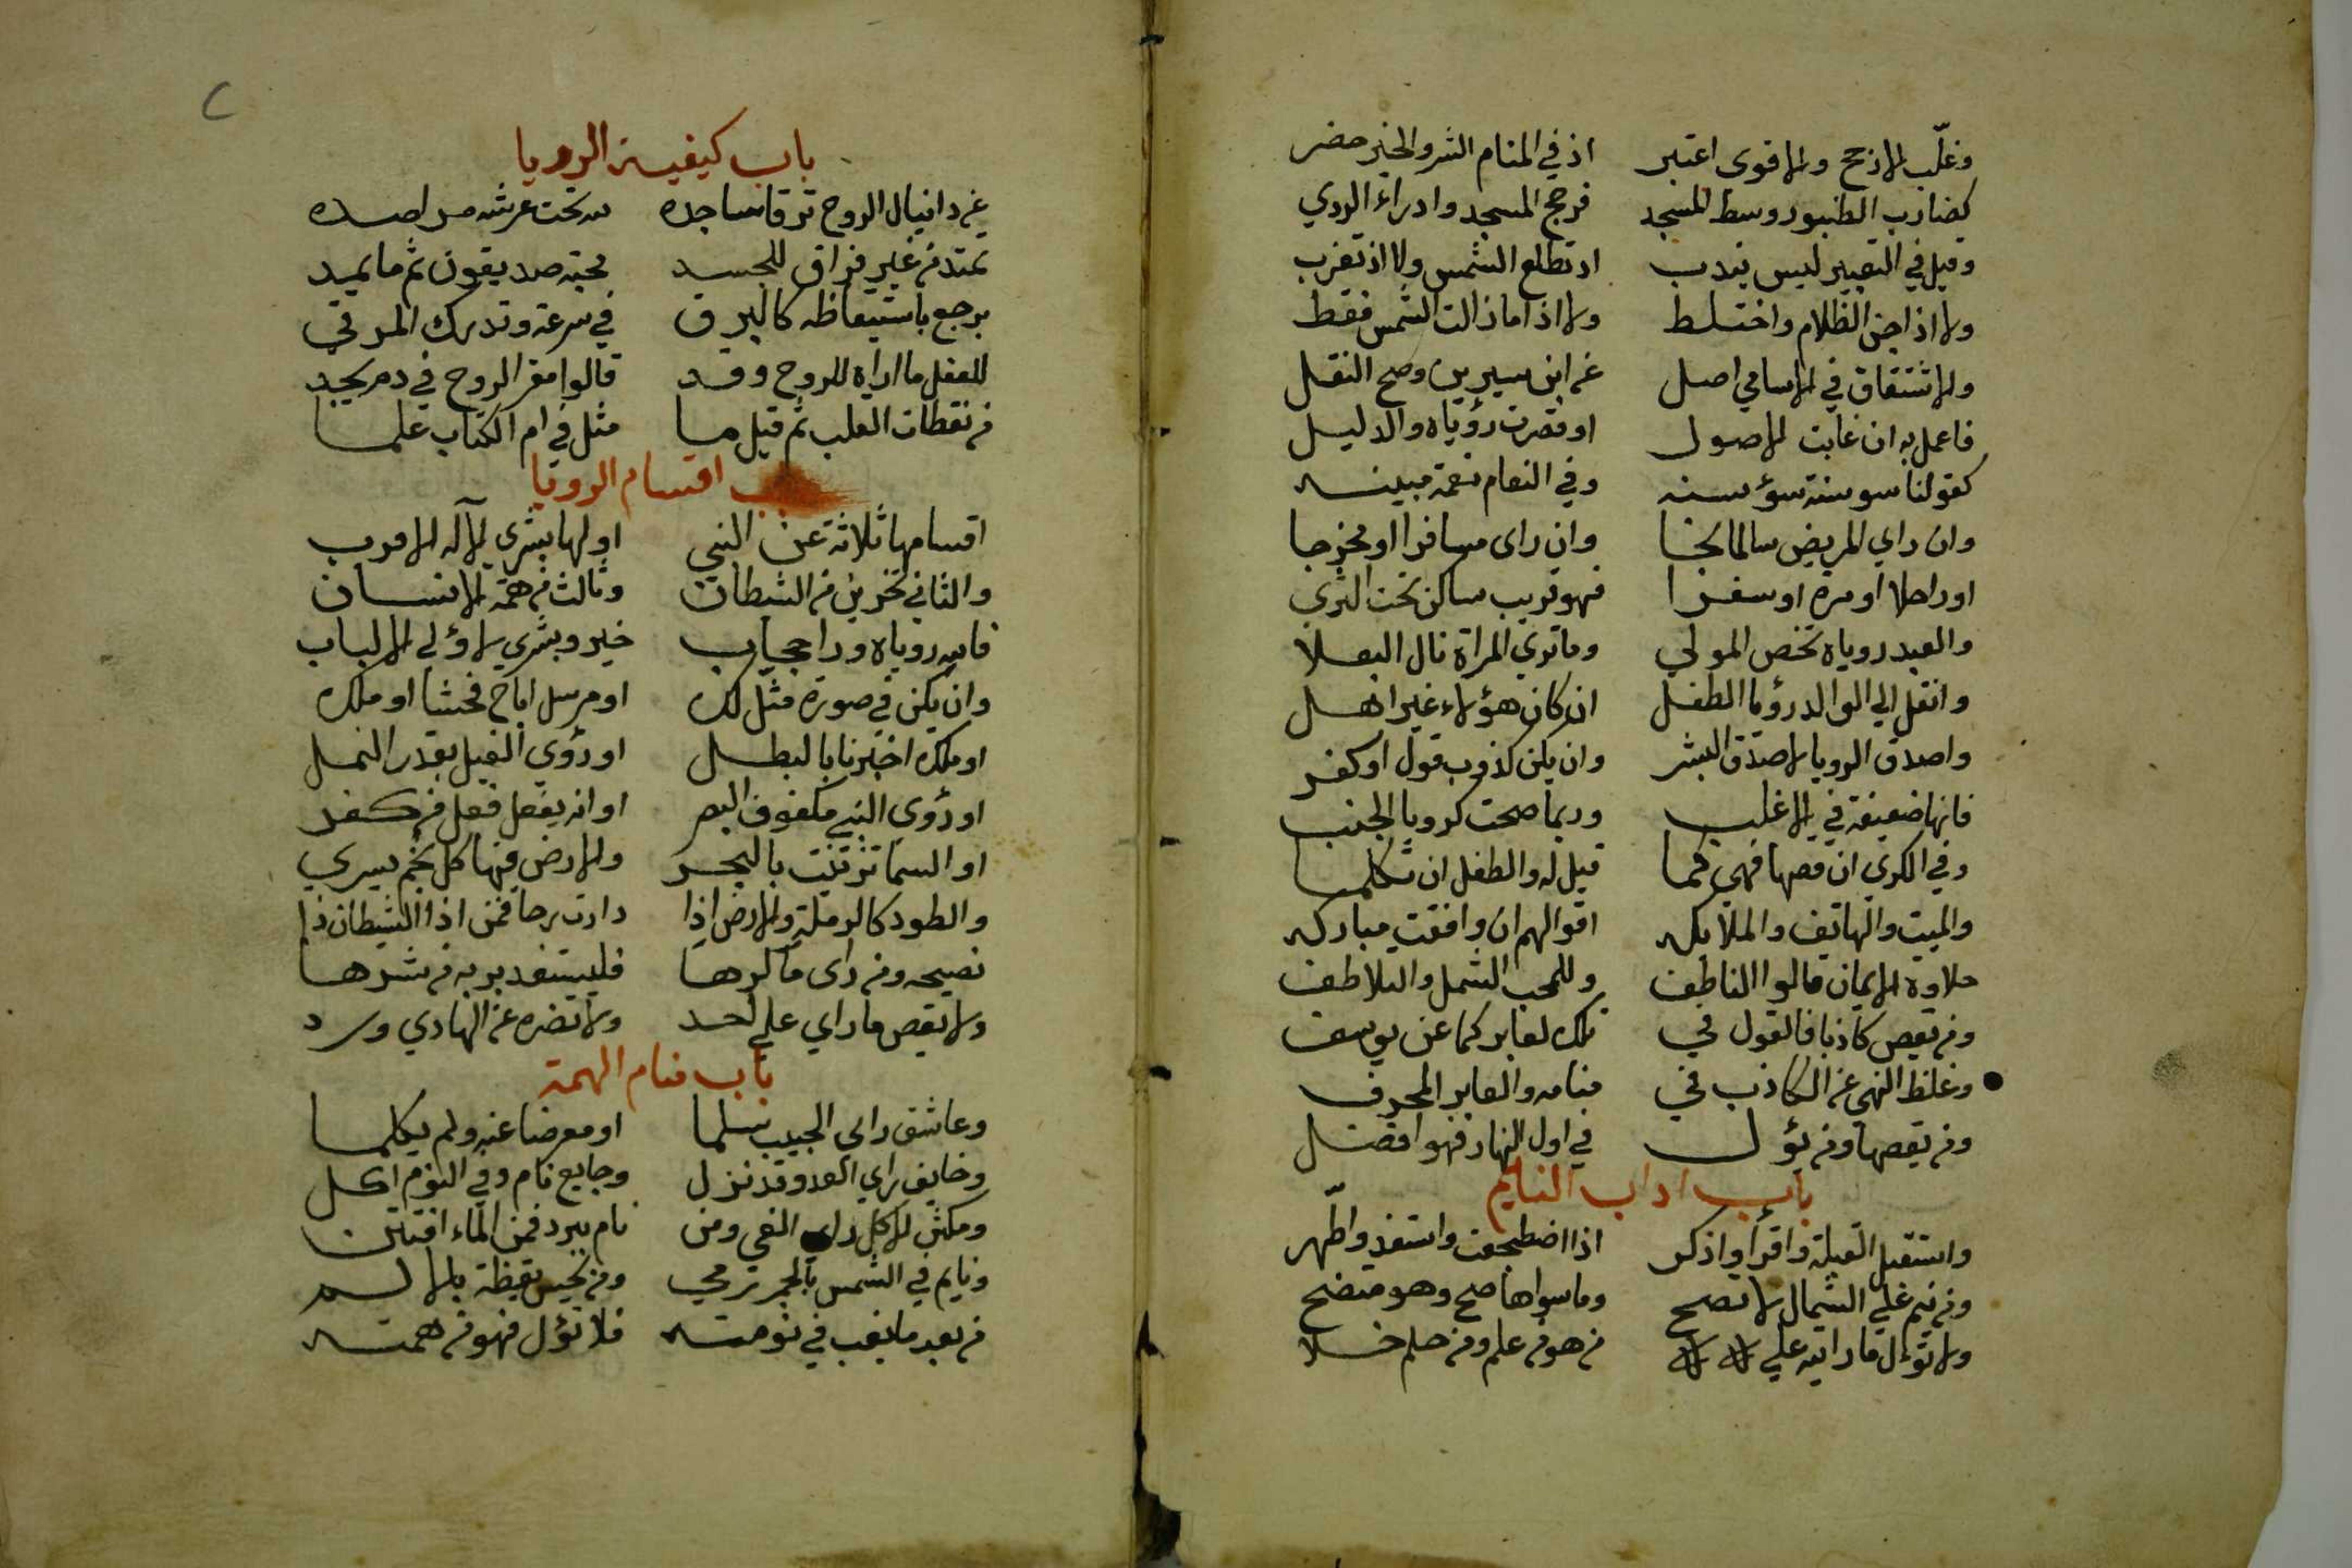 وغلّب الارجح والاقوى اعتبر اذ في المنام الشر والخير حضر
كضارب الطنبور وسط المسجد فرجح المسجد وادراء الردي
وقيل في التعبير ليس يندب اذ تطلع الشمس ولا اذ تغرب
ولا اذا جن الظلام واختلط ولا اذا ما زالت الشمس فقط
والاشتقاق في الاسامي اصل عن ابن سيرين وصح النقل
فاعمل به ان غابت الاصول او قصرت رؤياه والدليل
كقولنا سوسنة سؤ سنه وفي النعام نعمة مبينه
وان راي المريض سالما نجا وان راى مسافرا او مخرجا
او راحلا او مره او سفرا فهو قريب ساكن تحت الثري
والعبد روياه تخص المولي وما تري المراة نال البعلا
وانقل الي الوالد رؤيا الطفل ان كان هؤلاء غير اهل
واصدق الرويا لاصدق البشر وان يكن كذوب قول او كفر
فانها ضعيفة في الاغلب وربما صحت كرويا الجنب
وفي الكرى ان قصها فهي كما قيل له والطفل ان تكلما
والميت والهاتف والملايكه اقوالهم ان وافقت مباركه
حلاوة الايمان قالوا الناطف وللمحب الشمل والتلاطف
ومن يقص كاذبا فالقول في تلك لعابر كما عن يوسف
وغلظ النهي عن الكاذب في منامه والعابر المحرف
ومن يقصها ومن يؤل في اول النهار فهو افضل
باب اداب النايم
واستقبل القبلة واقرا واذكر اذا اضطجعت واستعذ واطّهر
ومن ينم علي الشمال لا تصح وما سواها صح وهو متضح
ولا تؤل ما رايته علي من هو من علم ومن حلم خلا
باب كيفية الرويا
عن دانيال الروح ترقا ساجده لله تحت عرشه
تمتد من غير فراق للجسد ثم ما يميد
يرجع باستيقاظه كالبرق في سرعة وتدرك المرقي
للعقل ما اراه للروح وقد قالوا مقر الروح في دم يجد
من نقطات القلب ثم قيل ما مثل في ام الكتاب علما
باب اقسام الرويا
اقسامها ثلاثة عن النبي اولها بشري الآله الاقرب
والثاني تحزين من الشيطان وثالث من همة الانسان
روياه خير وبشري لاؤلي الالباب
وان يكن في صورة مثل لك او مرسل اباح فحشا او ملك
او ملك اخبرنا بالبطل او رؤي الفيل بقدر النمل
او رؤى النبي مكفوف البصر او انه يفعل فعل من كفر
او السما بالبحر والارض فيها كل نجم يسري
والطود كالرملة والارض اذا دارت برحا فمن اذا الشيطان ذا
نصيحه ومن راى ما كرها فليستعذ بربه من شرها
ولا يقص ما راي علي احد ولا تضره عن الهادي ورد
باب منام الهمة
وعاشق راي الحبيب سلما او معرضا عنه ولم يكلما
وخايف راي العدو قد نزل وجايع نام وفي النوم اكل
ومكثر الاكل راي القي ومن نام ببرد فمن الماء افتتن
ونايم في الشمس بالجمر رمي ومن يحس يقظة بالالم
من بعد ما يغب في نومته فلا تؤل فهو من همته